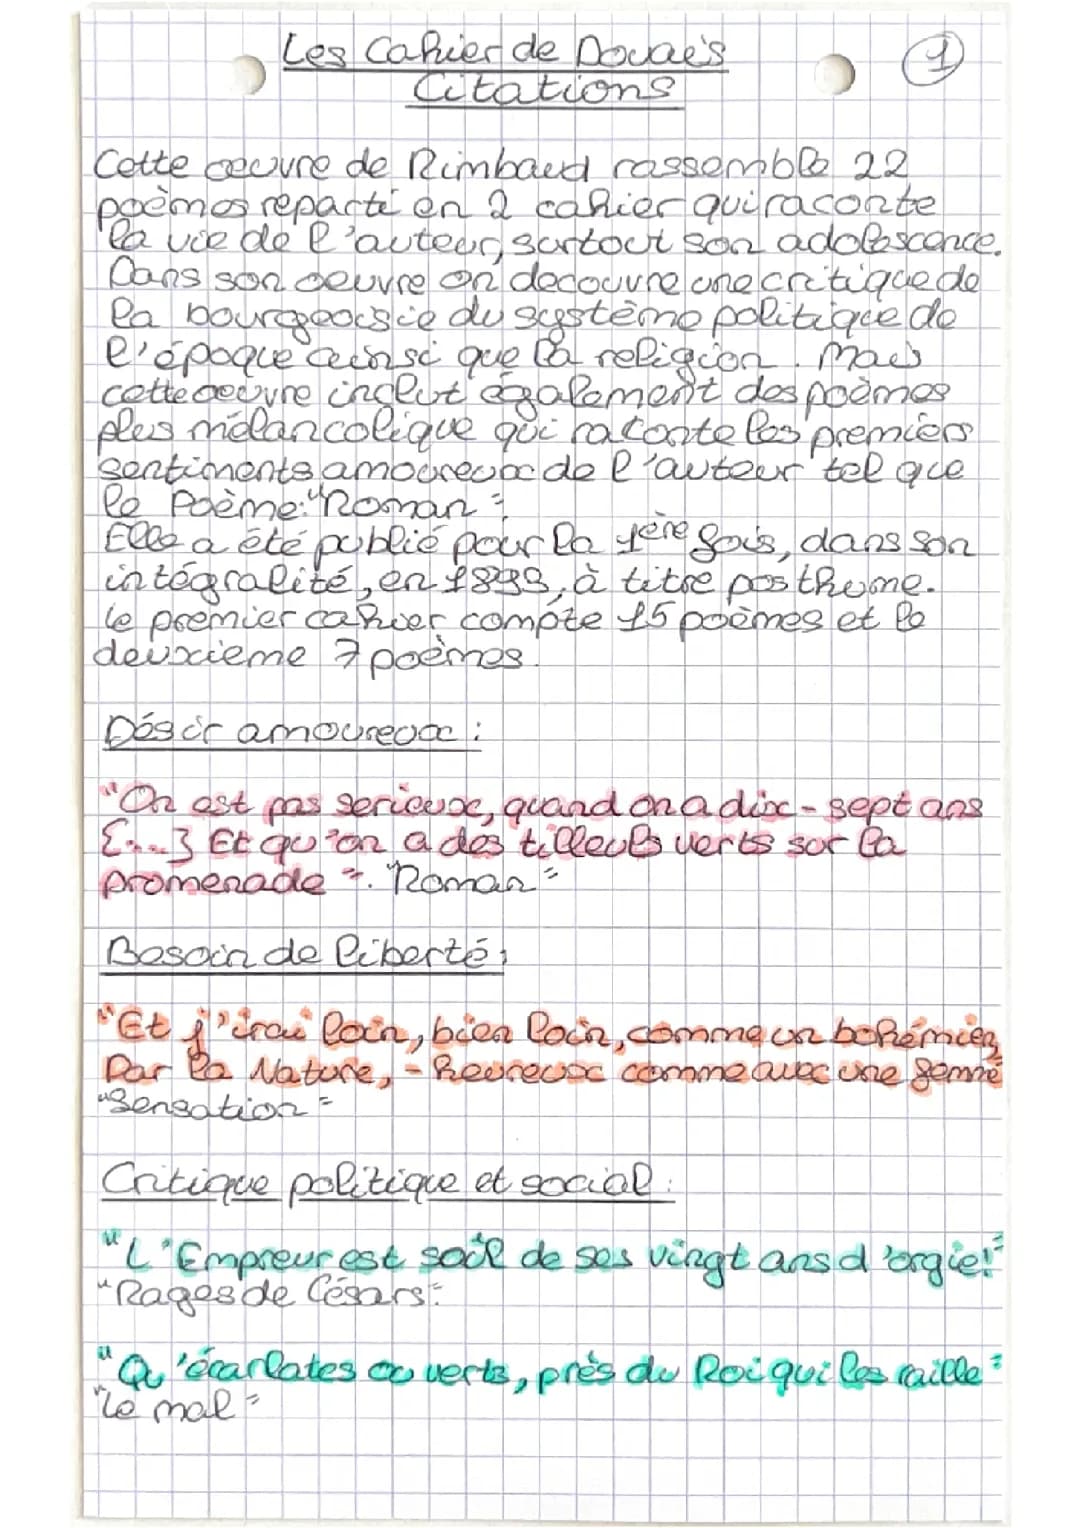 Les Cahier de Douaes
1
Citations
Cette oeuvre de Rimbaud rassemble 22
poèmes reparti en 2 cahier qui raconte
la vie de l'auteur, surtout son adolescence.
Dans son oeuvre on decouvre une critique de
la bourgeoisie du système politique de
l'époque ainsi que la religion. Mais
cette oeuvre inclut également des poèmes
plus mélancolique qui raconte les premiers
sentiments amoureux de l'auteur tel que
le Poème: "Roman".
Elle a été publié pour la 1ère fois, dans son
intégralité, en 1893, à titre posthume.
Le premier cahier compte 15 poèmes et le
deuxieme 7 poèmes.
Désir amoureux :
"On est pas serieux, quand on a dix-sept ans
[...] Et qu'on a des tilleuls verts sur la
promenade". "Roman"
Besoin de liberté :
"Et j'irai loin, bien loin, comme un bohémien
Par la Nature, - heureux comme avec une femme
"Sensation"
Critique politique et social :
"L'Empreur est soûl de ses vingt ans d'orgie!"
"Rages de Césars"
"Qu'écarlates ou verts, près du Roi qui les raille"
"Le mal"